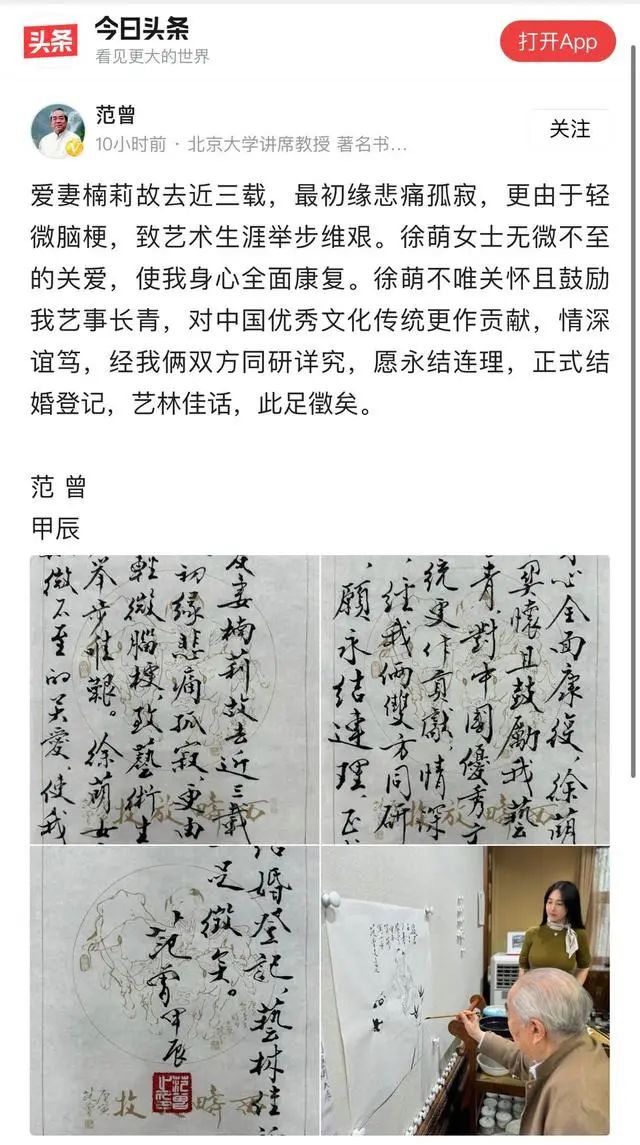 头条
今日头条
看见更大的世界
打开App
范曾
10小时前 · 北京大学讲席教授 著名书...
关注
爱妻楠莉故去近三载，最初缘悲痛孤寂，更由于轻
微脑梗，致艺术生涯举步维艰。徐萌女士无微不至
的关爱，使我身心全面康复。徐萌不唯关怀且鼓励
我艺事长青，对中国优秀文化传统更作贡献，情深
谊笃，经我俩双方同研详究，愿永结连理，正式结
婚登记，艺林佳话，此足徵矣。
范 曾
甲辰
妻楠莉故去近三載
初缘悲痛孤寂，更由
輕微腦梗，致藝術生
舉步惟艱。徐萌女
微不至的关愛，使我
心全面康復，徐萌
关懷且鼓勵我藝
青，對中國優秀文
統更作貢獻，情深
經我俩雙方同研
願永结連理，正
西畴放牧
婚登記，藝林佳
足徵矣。
范曾甲辰
西畴放牧